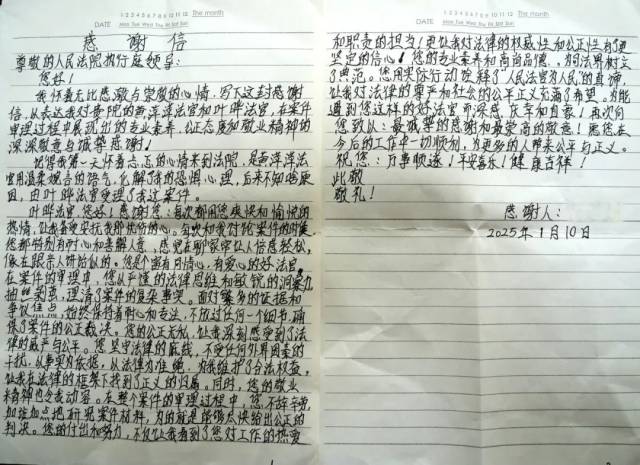 1 2 3 4 5 6 7 8 9 10 11 12 The month
DATE Mon Tue Wed Thu Fri Sat Sun
感谢信
尊敬的人民法院执行庭领导:
您好!
我怀着无比感激与崇敬的心情,写下这封感谢
信,以表达我对贵院的黄萍萍法官和叶晔法官,在案件
审理过程中展现出的专业素养、公正态度和敬业精神的
深深敬意与诚挚感谢!
记得我第一天怀着忐忑的心情来到法院,是黄萍萍法
官用温柔婉合的语气,化解了我的恐惧心理,后来不知啥原
因,由叶晔法官受理了我这案件。
叶晔法官,您好!感谢您:每次都用您爽快和愉悦的
热情,让我备受安抚我那忧伤的心。每次和我讨论案件的时候
您都特别有耐心和善解人意,感觉在聊家常让人倍感轻松,
像在跟亲人饼饴似的。您是个富有同情心,有爱心的好法官。
在案件的审理中,您以严谨的法律思维和敏锐的洞察力
抽丝剥茧,理清了案件的复杂事实。面对繁多的证据和
争议焦点,始终保持着耐心和专注,不放过任何一个细节,确
保了案件的公正裁决。您的公正无私,让我深刻感受到了法
律的威严与公平。您坚守法律的底线,不受任何外界因素的
干扰,以事实为依据,以法律为准绳,为我维护了合法权益,
让我在法律的框架下找到了正义的归属。同时,您的敬业
精神也令我动容。在整个案件的审理过程中,您不辞辛劳,
加班加点地研究案件材料,为的就是能够尽快给出公正的
判决。您的付出和努力,不仅让我看到了您对工作的热爱
1 2 3 4 5 6 7 8 9 10 11 12 The month
DATE Mon Tue Wed Thu Fri Sat Sun
和职责的担当!更让我对法律的权威性和公正性有了更
坚定的信心!您的专业素养和高尚品德,为司法界树立
了典范。您用实际行动诠释了“人民法官为人民”的真谛,
让我对法律的尊严和社会的公平正义充满了希望。为能
遇到您这样的好法官而深感庆幸和自豪!再次向
您致以:最诚挚的感谢和最崇高的敬意!愿您在
今后的工作中一切顺利,为更多的人带来公平与正义。
祝您:万事顺遂!平安喜乐!健康吉祥!
此致
敬礼!
感谢人:
2025年1月10日